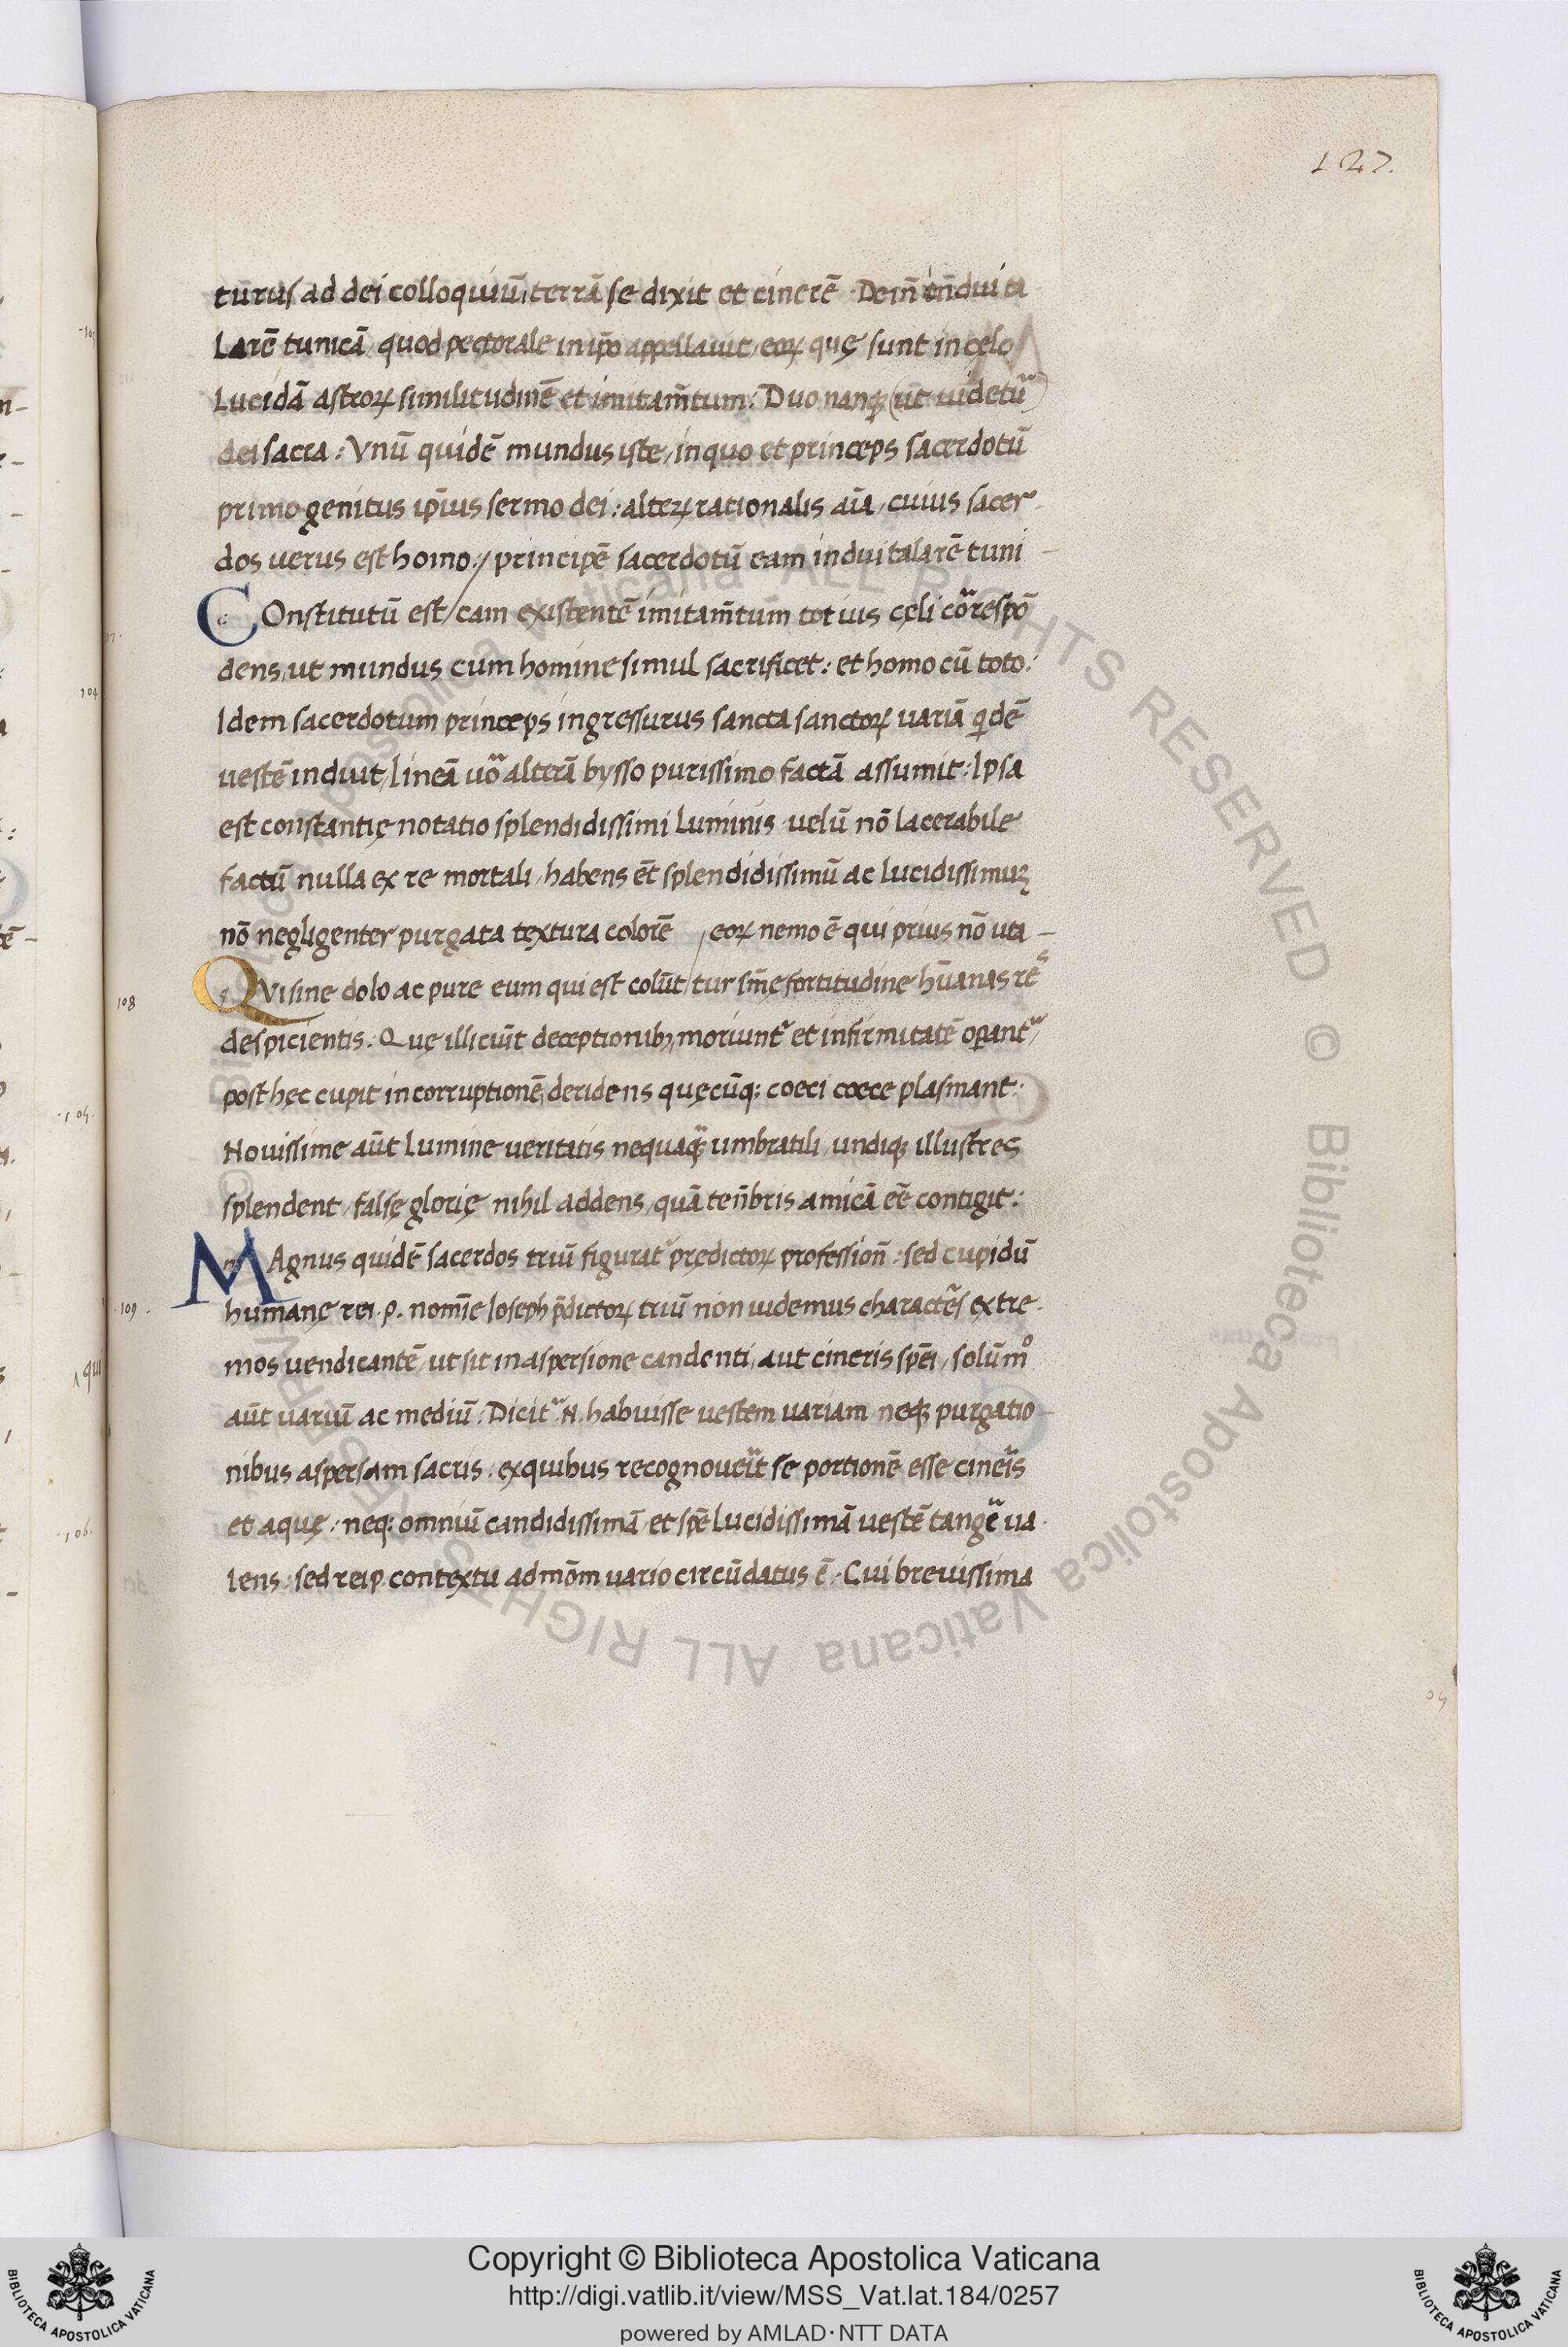 127.
turus ad dei colloquiū, terrā se dixit et cinerē. Dein̄ in̄dui ta
larē tunicā, quod pectorale in ip̄o appellauit, eoꝝ quę sunt in cęlo
Lucidā astroꝝ similitudinē et imitam̄tum: Duo nanqꝫ (ut uidetur)
dei sacra: Vnū quidē mundus iste, in quo et princeps sacerdotū
primogenitus ip̄ius sermo dei: alteꝝ rationalis aīa, cuius sacer
dos uerus est homo:/ principē sacerdotū eam indui talarē tuni –
COnstitutū est/ cam existentē imitam̄tum totius cęli correspō
dens, ut mundus cum homine simul sacrificet: et homo cū toto:
Idem sacerdotum princeps ingressurus sancta sanctoꝝ uariā qͥdē
uestē induit, lineā uͦo alterā bysso purissimo factā assumit: Ipsa
est constantię notatio splendidissimi luminis. uelū nō lacerabile
factū nulla ex re mortali, habens et̄ splendidissimū ac lucidissimuꝝ
nō negligenter purgata textura colorē / eoꝝ nemo ē qui prius nō uta –
108
QVi sine dolo ac pure eum qui est colūt/ tur sm̄ę fortitudine hūanas rēs
despicientis. Quę illiciūt deceptionibꝫ, moriuntur et infirmitatē oꝑantur,
post hęc cupit incorruptionē, deridens quęcūqꝫ coeci coece plasmant:
Nouissime aūt lumine ueritatis nequaqͣ umbratili, undiqꝫ illustres
splendent, falsę glorię nihil addens, quā ten̄bris amicā eē contigit:
MAgnus quidē sacerdos triū figuratur prędictoꝝ professioñ: sed cupidū
109.
humanę rei .p. nomīe Ioseph p̄dictoꝝ triū non uidemus charactēs extre
mos uendicantē, ut sit in aspersione candenti, aut cineris spēi, solūmͦ
aūt uariū ac mediū: Dicitur .N. habuisse uestem uariam neqꝫ purgatio –
nibus aspersam sacris: ex quibus recognouerit se portionē esse cineris
et aquę: neqꝫ omniū candidissimā, et spē lucidissimā uestē tangere ua
lens: sed reip. contextu admōm uario circūdatus ē. Cui breuissima
Copyright © Biblioteca Apostolica Vaticana
http://digi.vatlib.it/view/MSS_Vat.lat.184/0257
powered by AMLAD·NTT DATA
BIBLIOTECA APOSTOLICA VATICANA
BIBLIOTECA APOSTOLICA VATICANA
© Biblioteca Apostolica Vaticana ALL RIGHTS RESERVED © Biblioteca Apostolica Vaticana ALL RIGHTS RESERVED